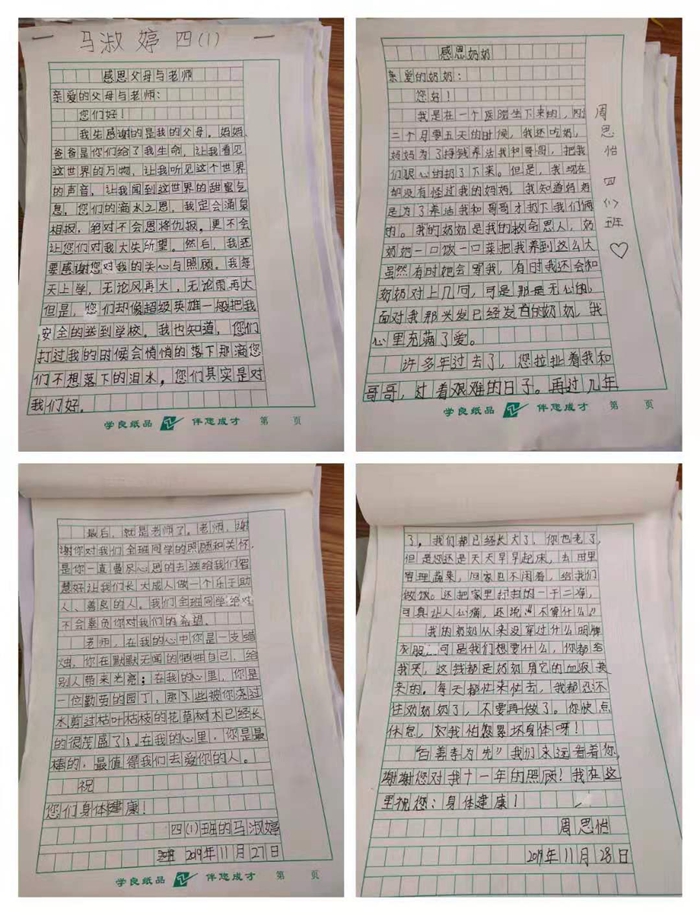 马淑婷 四(1)
感恩父母与老师
亲爱的父母与老师:
您们好!
我先感谢的是我的父母。妈妈、
爸爸是你们给了我生命,让我看见
这世界的万物,让我听见这个世界
的声音,让我闻到这世界的甜蜜气
息。您们的滴水之恩,我定会涌泉
相报,绝对不会恩将仇报。更不会
让您们对我大失所望。然后,我还
要感谢您对我的关心与照顾。我每
天上学,无论风再大,无论雨再大
但是,您们却像超级英雄一般把我
安全的送到学校。我也知道,您们
打过我的时候会悄悄的落下那滴您
们不想落下的泪水。您们其实是对
我们好。
学良纸品 伴您成才 第 页
最后,就是老师了。老师,谢
谢你对我们全班同学的照顾和关怀。
是你一直费尽心思的去送给我们智
慧好让我们长大成人做一个乐于助
人、善良的人。我们全班同学绝对
不会辜负你对我们的希望。
老师,在我的心中你是一支蜡
烛。你在默默无闻的牺牲自己,给
别人带来光亮;在我的心里,你是
一位勤劳的园丁,那些被你浇过
水剪过枯叶枯枝的花草树木已经长
的很茂盛了。在我的心里,你是最
棒的,最值得我们去爱你的人。
祝
您们身体健康!
四(1)班的马淑婷
2019年11月27日
学良纸品 伴您成才 第 页
感恩奶奶
亲爱的奶奶:
您好!
我是在一个医院生下来的,刚
二个月零五天的时候,我还吃奶,
妈妈为了挣钱养活我和哥哥,把我
们狠心的扔了下来。但是,我现在
却没有怪过我的妈妈,我知道妈妈
是为了养活我和哥哥才扔下我们俩
的。我的奶奶是我的救命恩人,奶
奶把一口饭一口菜把我养到这么大
虽然有时她会骂我,有时我还会和
奶奶对上几句,可是那是无心的。
面对我那头发已经发白的奶奶,我
心里充满了爱。
许多年过去了,您拉扯着我和
哥哥,过着艰难的日子。再过几年
周思怡四(1)班♡
学良纸品 伴您成才 第 页
了,我们都已经长大了,你也老了,
但是您还是天天早早起床,去田里
管理蔬果,回家也不闲着,给我们
做饭。还把家里打扫的一干二净,
可真让人心痛,还说:不算什么!
我的奶奶从来没穿过什么明牌
衣服…可是我们想要什么,你都给
我买,这钱都是奶奶用它的血汗换
来的。每天都忙来忙去,我都忍不
住劝奶奶了,不要再做了。你快点
休息,好我怕您累坏身体呀!
"百善孝为先"我们永远看着你。
谢谢您对我十一年的照顾!我在这
里祝您:身体健康!
周思怡
2019年11月28日